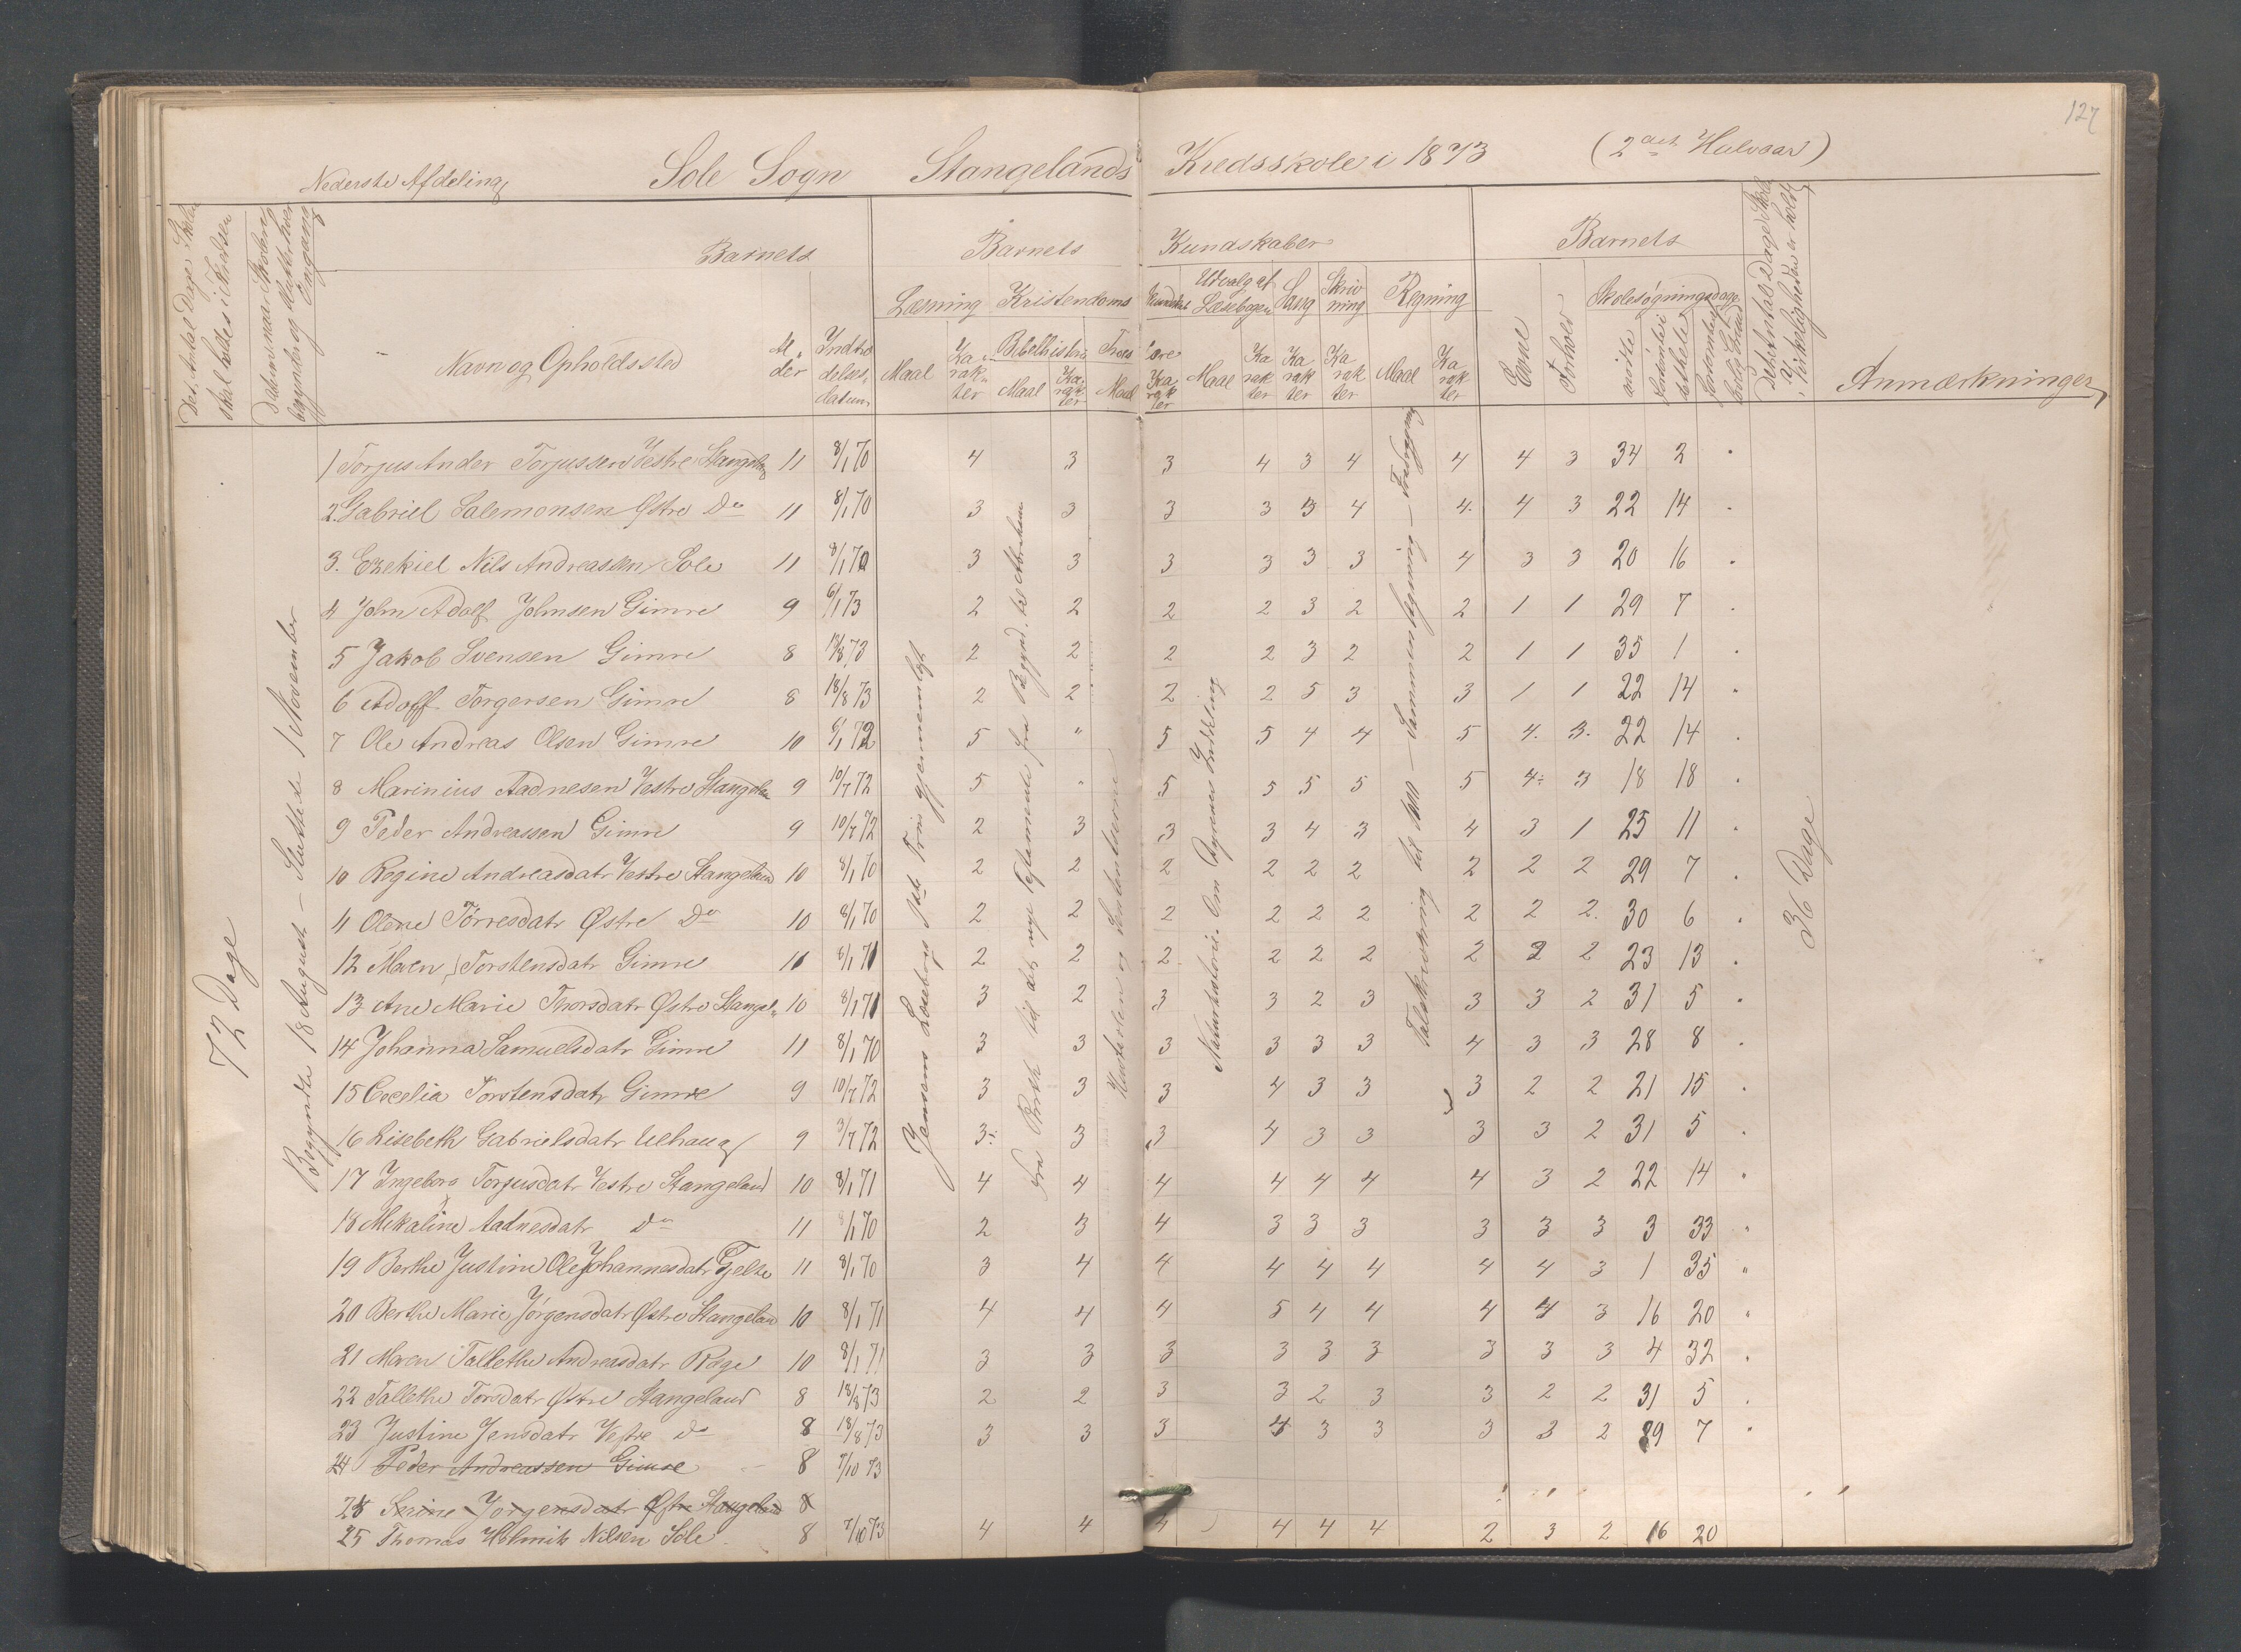 127
Nederste Afdeling Sole Sogn Stangelands Kredsskole i 1873 (2det Halvaar)
Det Antal Dage Skolen skal holdes i Kredsen
Datum, naar Skolen begynder og slutter hver Omgang
Barnets
Navn og Opholdssted
Al-der
Indtrædelses-datum
Barnets Kundskaber
Læsning Kristendoms Kundskab Udvalg af Læsebogen Sang Skrivning Regning
Maal Karakter Bibelhistorie Maal Karakter Troeslære Maal Karakter Maal Karakter Karakter Karakter Maal Karakter
Barnets
Evne Forhold Skolesøgningsdage
mødte forsømte i det hele
Det Antal Dage Skole i Virkeligheden er holdt
Anmærkninger
72 Dage
Begyndte 18 August – Sluttede 1 November
Jensens Læsebog 1ste Trin gjennemligt
Fra Ruth til det nye Testamente, fra Begynd. til Abraham
Naturhistorie. Om Dyrenes Inddeling
Talskrivning til 1000 – Sammenlægning – Fradragning
36 Dage
1 Torjus Ander Torjussen Vestre Stangeland 11 8/1 70 4 3 3 4 3 4 4 4 3 34 2 "
2. Gabriel Salemonsen Østre Do 11 8/1 70 3 3 3 3 3 4 4. 4 3 22 14 "
3. Ezekiel Nils Andreassen Sole 11 8/1 70 3 3 3 3 3 3 4 3 3 20 16 "
4 John Adolf Johnsen Gimre 9 6/1 73 2 2 2 2 3 2 2 1 1 29 7 "
5 Jakob Svensen Gimre 8 18/8 73 2 2 2 2 3 2 2 1 1 35 1 "
6 Adolf Torgersen Gimre 8 18/8 73 2 2 2 2 5 3 3 1 1 22 14 "
7 Ole Andreas Olsen Gimre 10 8/1 72 5 " 5 5 4 4 5 4. 3. 22 14 "
8 Marinius Aadnesen Vestre Stangeland 9 10/7 72 5 " 5 5 5 5 5 4: 3 18 18 "
9 Peder Andreassen Gimre 9 10/7 72 2 3 3 3 4 3 4 3 1 25 11 "
10 Regine Andreasdatr Vestre Stangeland 10 8/1 70 2 2 2 2 2 2 2 2 2 29 7 "
11 Olene Torresdatr Østre Do 10 8/1 70 2 2 2 2 2 2 2 2 2. 30 6 "
12 Maren Torstensdatr Gimre 11 8/1 71 2 2 2 2 2 2 2 2 2 23 13 "
13 Ane Marie Thorsdatr Østre Stangel. 10 8/1 71 3 2 3 3 2 3 3 3 2 31 5 "
14 Johanna Samuelsdatr Gimre 11 8/1 70 3 3 3 3 3 3 4 3 3 28 8 "
15 Cecelia Torstensdatr Gimre 9 10/7 72 3 3 3 4 3 3 3 2 2 21 15 "
16 Lisebeth Gabrielsdatr Ulhaug 9 9/7 72 3: 3 3 4 3 3 3 3 2 31 5 "
17 Ingeborg Torjusdatr Vestre Stangeland 10 8/1 71 4 4 4 4 4 4 4 3 2 22 14 "
18 Mikaline Aadnesdatr Do 11 8/1 70 2 3 4 3 3 3 3 3 3 3 33 "
19 Berthe Justine Ole Johannesdatr Tjelte 11 8/1 70 3 4 4 4 4 4 4 4 3 1 35 "
20 Berthe Marie Jørgensdatr Østre Stangeland 10 8/1 71 4 4 4 5 4 4 4 4 3 16 20 "
21 Maren Tallethe Andreasdatr Ræge 10 8/1 71 3 3 3 3 3 3 3 3 3 4 32 "
22 Tallethe Torsdatr Østre Stangeland 8 18/8 73 2 2 3 3 2 3 3 2 2 31 5 "
23 Justine Jensdatr Vestre do 8 18/8 73 3 3 3 4 3 3 3 3 2 29 7 "
24 Peder Andreassen Gimre 8 7/10 73
Serine Jørgensdatr Østre Stangeland 8
25 Thomas Nilsen Sole 8 7/10 73 4 4 4 4 4 4 2 3 2 16 20